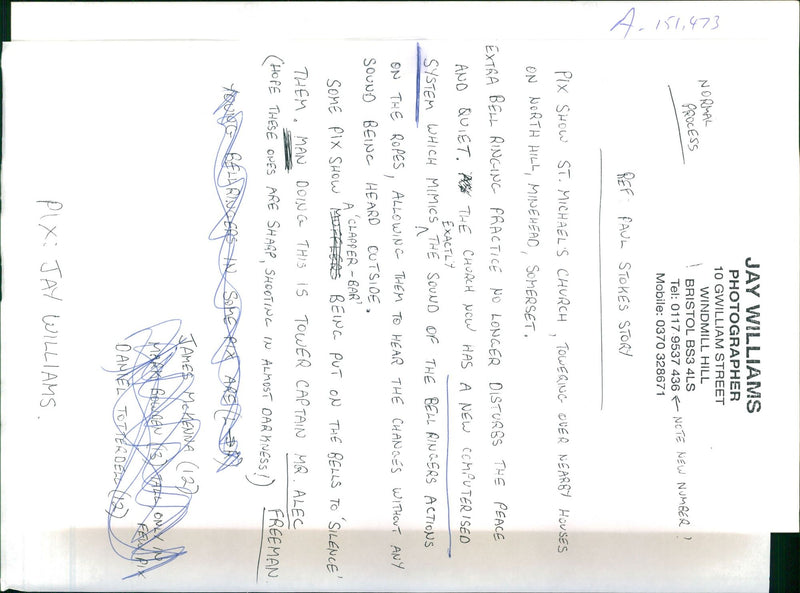 A. 151,473
JAY WILLIAMS
PHOTOGRAPHER
10 GWILLIAM STREET
WINDMILL HILL
BRISTOL BS3 4LS
Tel: 0117 9537 436 ← NOTE NEW NUMBER!
Mobile: 0370 328671
NORMAL
PROCESS
REF: PAUL STOKES STORY
PIX SHOW ST. MICHAEL'S CHURCH, TOWERING OVER NEARBY HOUSES
ON NORTH HILL, MINEHEAD, SOMERSET.
EXTRA BELL RINGING PRACTICE NO LONGER DISTURBS THE PEACE
AND QUIET. THE CHURCH NOW HAS A NEW COMPUTERISED
SYSTEM WHICH MIMICS EXACTLY THE SOUND OF THE BELL RINGERS ACTIONS
ON THE ROPES, ALLOWING THEM TO HEAR THE CHANGES WITHOUT ANY
SOUND BEING HEARD OUTSIDE.
SOME PIX SHOW MUFFLERS A 'CLAPPER-BAR' BEING PUT ON THE BELLS TO 'SILENCE'
THEM. MAN DOING THIS IS TOWER CAPTAIN MR. ALEC
FREEMAN.
(HOPE THESE ONES ARE SHARP, SHOOTING IN ALMOST DARKNESS!)
YOUNG BELLRINGERS IN SOME PIX ARE
JAMES McKENNA (12)
MARK BOWDEN (13, TALL ONE IN
FEW PIX
DANIEL TOTTERDELL (12)
PIX: JAY WILLIAMS.